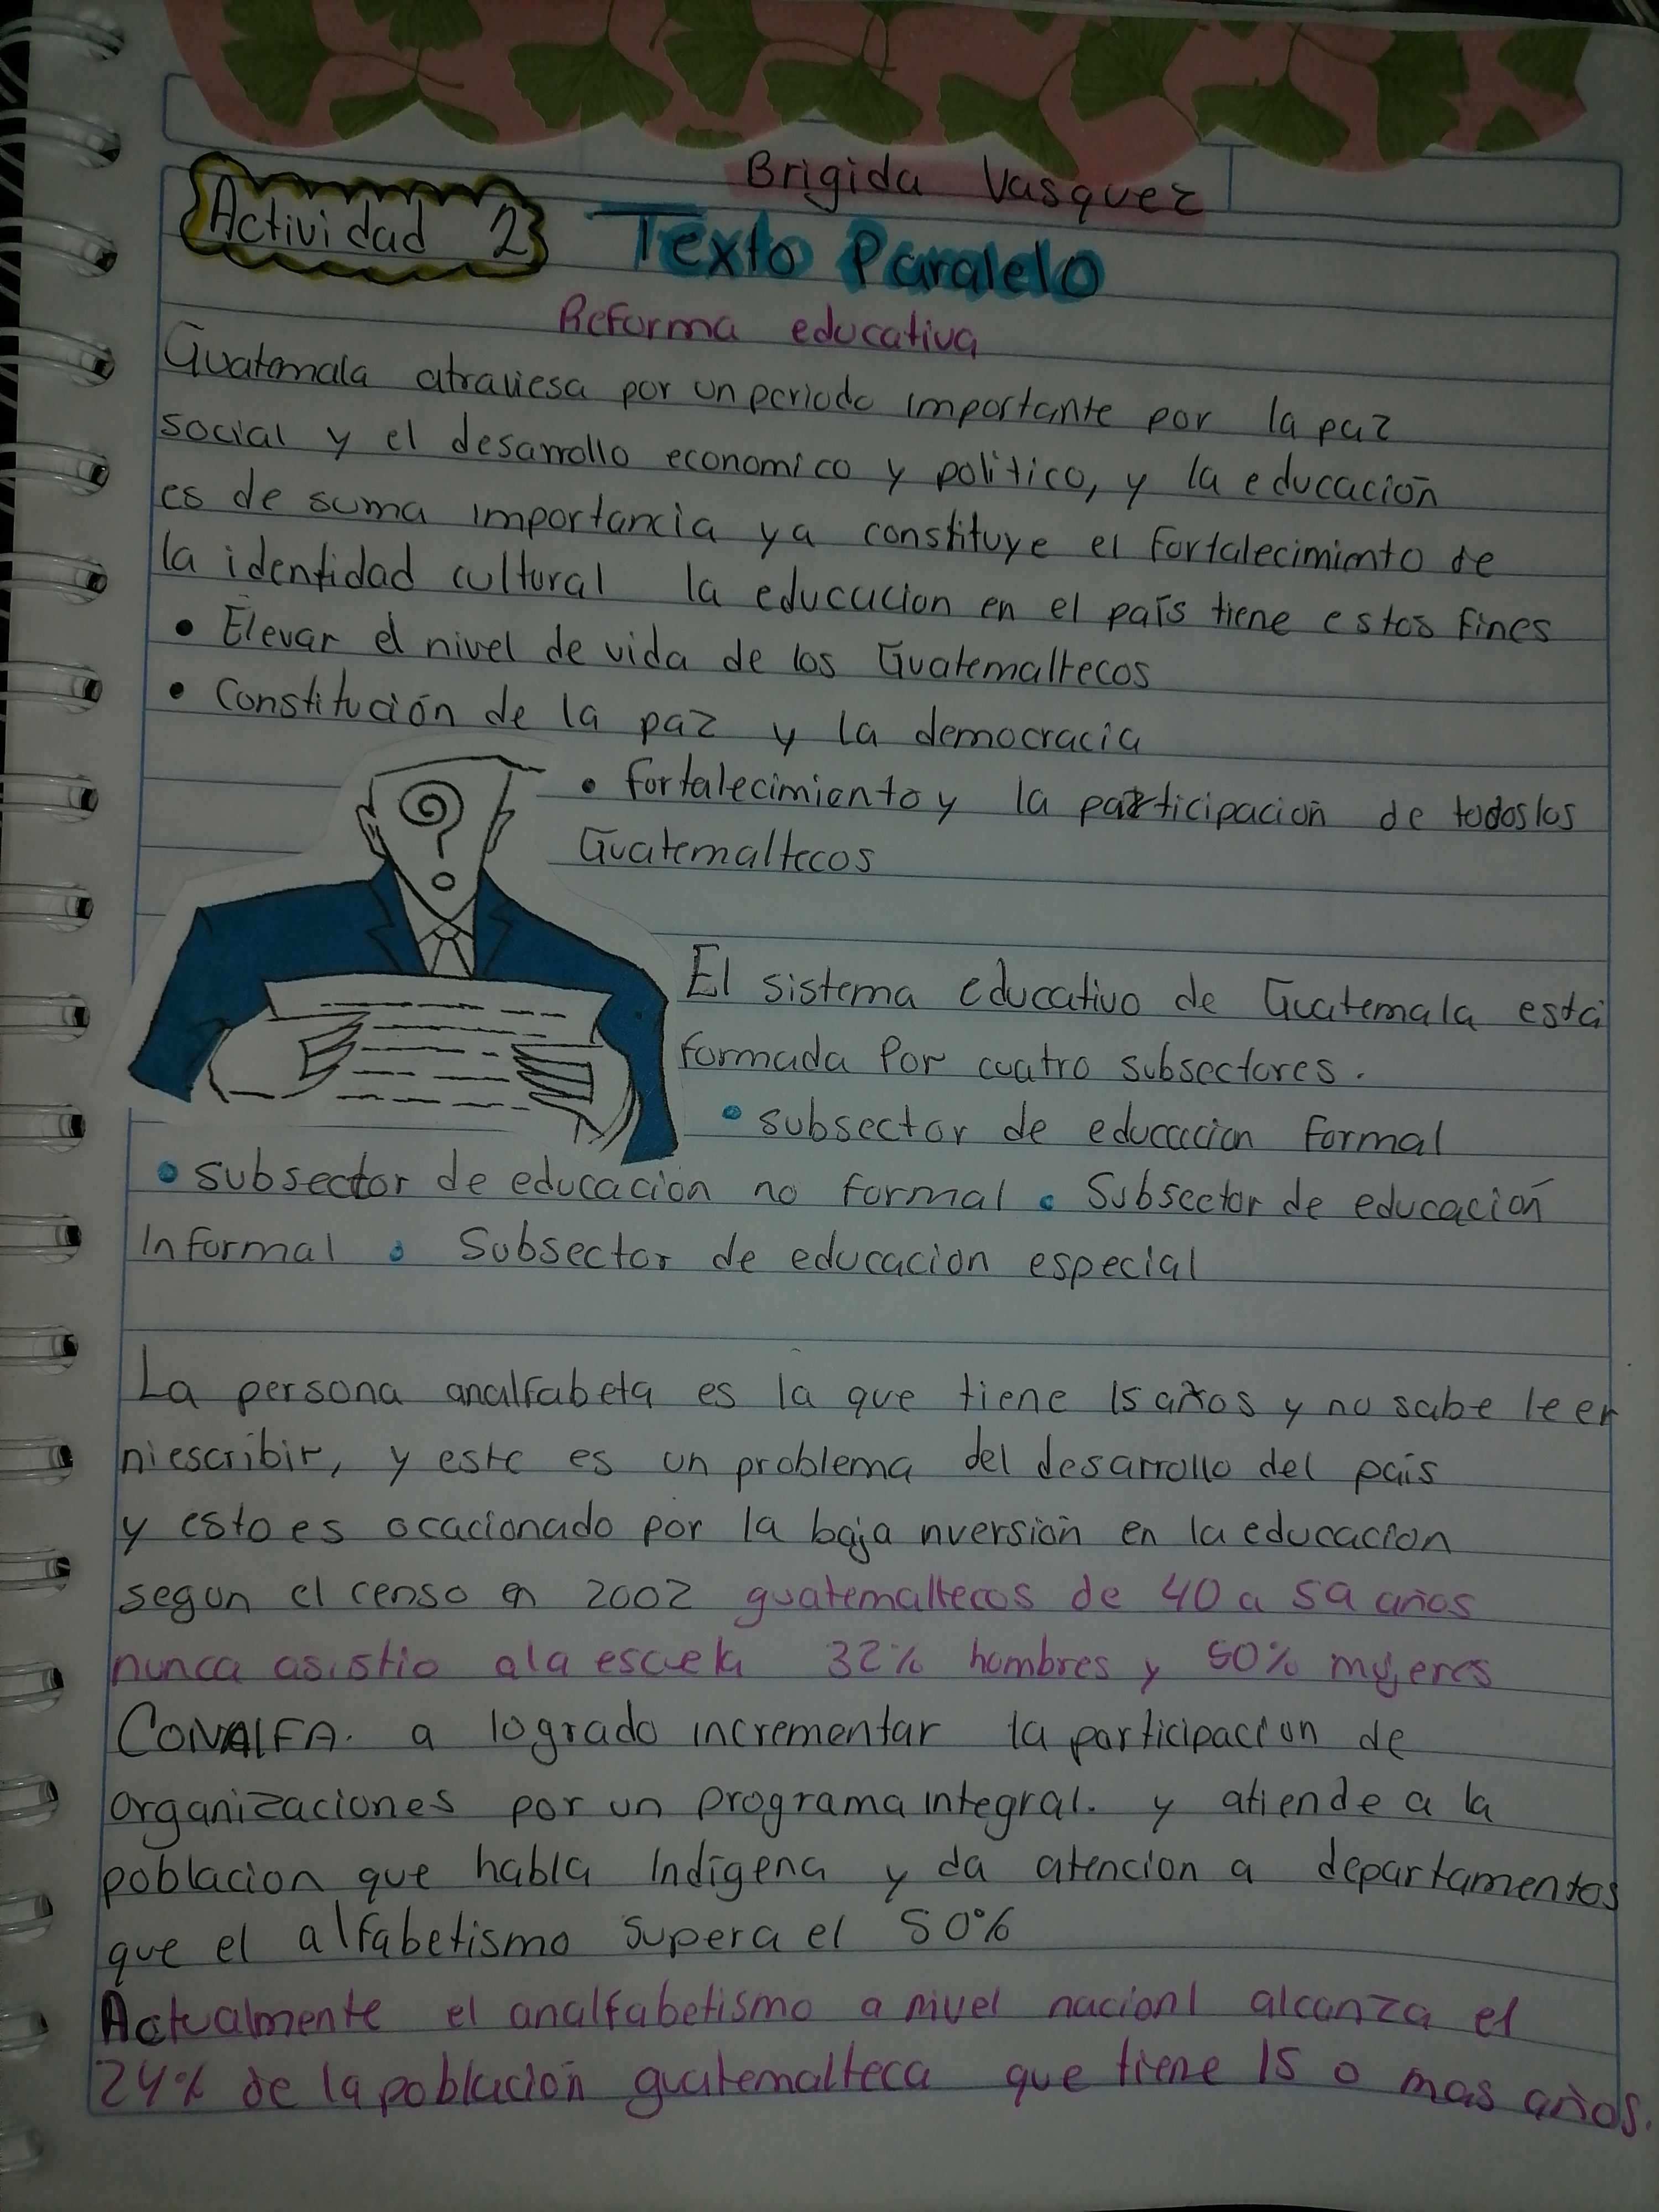 Brigida Vasquez
Actividad 2 Texto Paralelo
Reforma educativa
Guatemala atraviesa por un periodo importante por la paz
social y el desarrollo economico y politico, y la educación
es de suma importancia ya constituye el fortalecimimto de
la identidad cultural la educucion en el país tiene estos fines
• Elevar el nivel de vida de los Guatemaltecos
• Constitución de la paz y la democracia
• fortalecimiento y la participación de todos los
Guatemaltecos
El sistema educativo de Guatemala está
formada Por cuatro subsectores.
• subsector de educacion formal
• subsector de educación no formal • Subsector de educación
Informal • Subsector de educacion especial
La persona analfabeta es la que tiene 15 años y no sabe leer
ni escribir, y este es un problema del desarrollo del país
y esto es ocacionado por la baja nversión en la educacion
segun el censo en 2002 guatemaltecos de 40 a 59 años
nunca asistio a la escuela 32% hombres y 50% mujeres
CONALFA. a logrado incrementar la participacion de
organizaciones por un programa integral. y atiende a la
poblacion que habla Indígena y da atencion a departamentos
que el alfabetismo supera el 50%
Actualmente el analfabetismo a nivel nacionl alcanza el
24% de la población guatemalteca que tiene 15 o mas años.